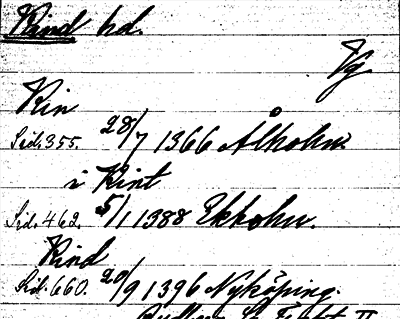 Kind hd.
Vg
Kin
Sid. 355. 28/7 1366 Ålholm.
i Kint
Sid. 462. 5/1 1388 Ekholm.
Kind
Sid. 660. 20/9 1396 Nyköping.